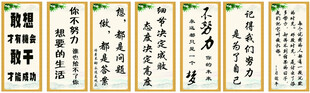 敢想
才有机会
敢干
才能成功
你不努力
谁也给不了你
想要的生活
想，都是问题
做，都是答案
细节决定成败
态度决定高度
不努力
你的未来
永远都只是一个
梦
记得我们努力
是为了自己